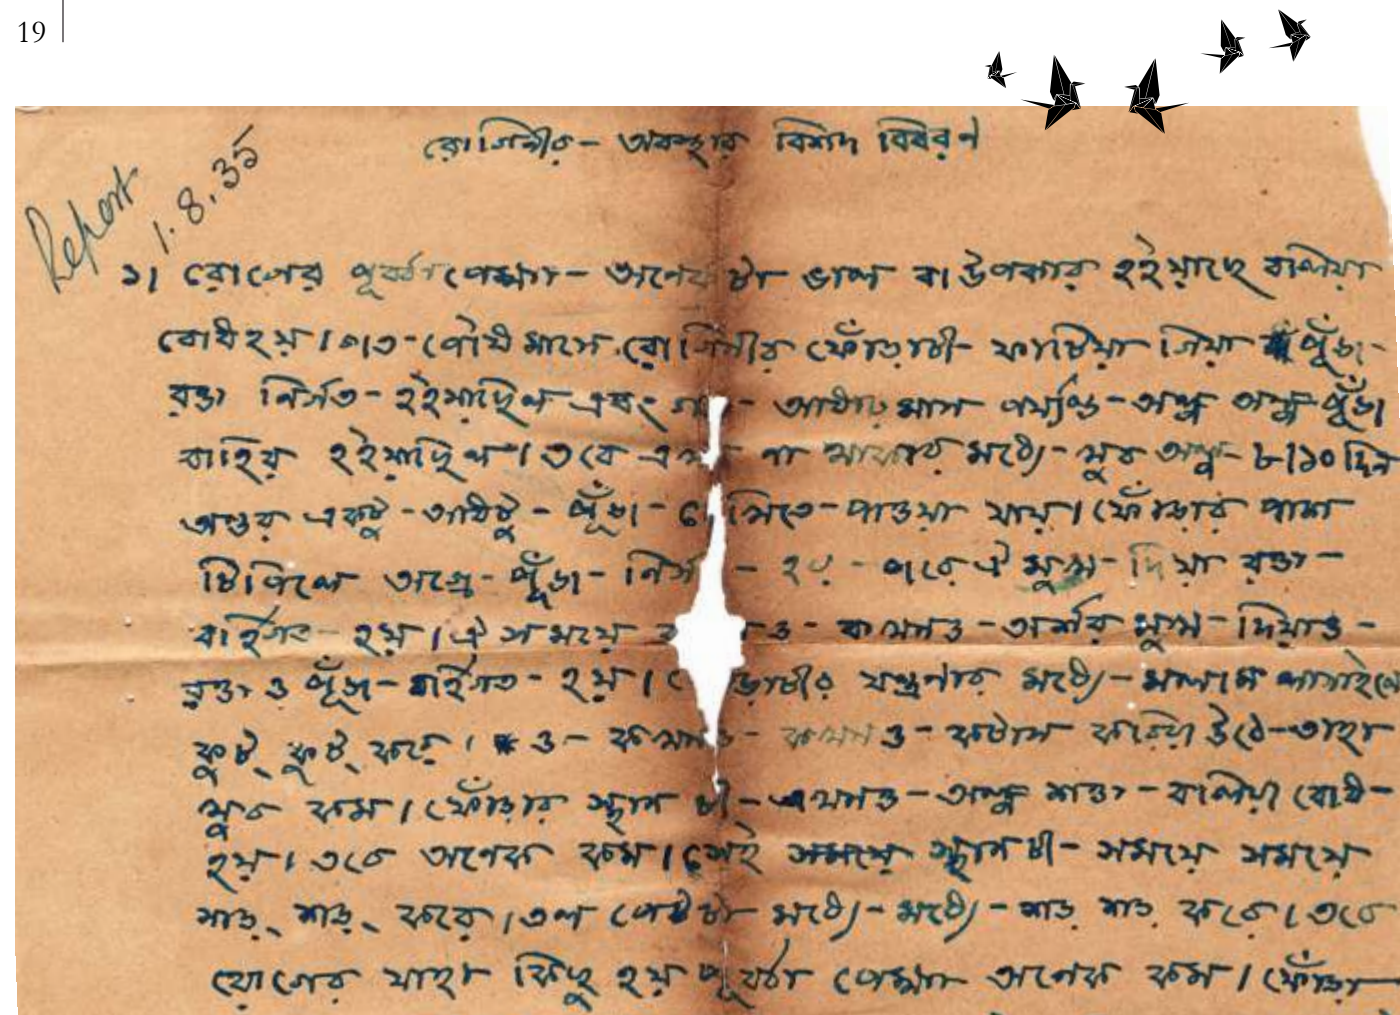 19
Report
1.8.35
রোগিনীর - অবস্থার বিশদ বিবরণ
১। রোগের পূর্ব্বাপেক্ষা - অনেকটা ভাল বা উপকার হইয়াছে বলিয়া
বোধ হয়। গত - পৌষ মাসে রোগিনীর ফোঁড়াটী - ফাটিয়া গিয়া পূঁজ -
রক্ত নির্গত - হইয়াছিল এবং - আষাঢ় মাস পর্য্যন্ত - অল্প অল্প পূঁজ
বাহির হইয়াছিল। তবে না মাসের মধ্যে - খুব অল্প - ৮।১০ দিন
অন্তর একটু - আধটু - পূঁজ - দেখিতে - পাওয়া যায়। ফোঁড়ার পাশ
টিপিলে অগ্রে - পূঁজ - - হয় - পরে ঐ মুখ - দিয়া রক্ত -
বাহির্গত - হয়। ঐ সময়ে - কখনও - অর্শর মুখ - দিয়াও -
রক্ত ও পূঁজ - বাহির্গত - হয়। যন্ত্রণার মধ্যে - মলম লাগাইলে
ফুট্ ফুট্ করে। ও - কখনও - কখনও - কটাস করিয়া উঠে - তাহা
খুব কম। ফোঁড়ার স্থান টী - এখনও - অল্প শক্ত - বলিয়া বোধ -
হয়। তবে অনেক কম। সেই স্থানটী - সময়ে সময়ে
করে। তল পেটটা মধ্যে - মধ্যে - করে। তবে
রোগের যাহা কিছু হয় পূর্ব্বাপেক্ষা অনেক কম। ফোঁড়া